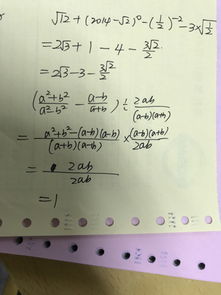 √12 + (2014-√2)⁰ - (1/2)⁻² - 3×√(1/2)
= 2√3 + 1 - 4 - 3√2/2
= 2√3 - 3 - 3√2/2
((a²+b²)/(a²-b²) - (a-b)/(a+b)) ÷ 2ab/((a-b)(a+b))
= (a²+b²-(a-b)(a-b))/((a+b)(a-b)) × ((a-b)(a+b))/2ab
= 2ab/2ab
= 1